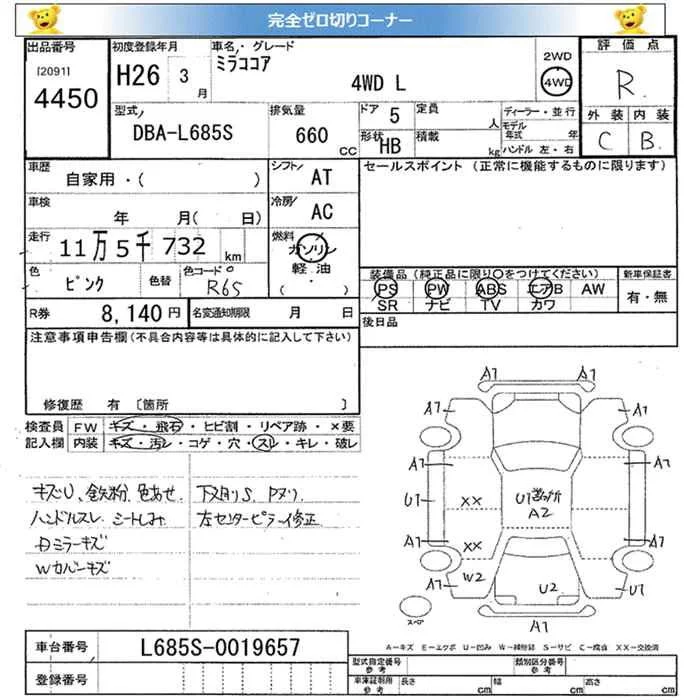 完全ゼロ切りコーナー
出品番号 I20911 4450
初度登録年月 H26 3月
車名・グレード ミラココア 4WD L
2WD 4WD
評価点 R
外装 内装
C B
型式 DBA-L685S
排気量 660 CC
ドア 5
形状 HB
定員 人
積載 kg
ディーラー・並行
モデル年式 年
ハンドル 左・右
車歴 自家用・( )
シフト AT
セールスポイント (正常に機能するものに限ります)
車検 年 月( 日)
冷房 AC
走行 11万5千732 km
燃料 ガソリン 軽油 ( ・ )
色 ピンク 色替 色コード R65
装備品(純正品に限り○をつけてください)
PS PW ABS エアB AW
SR ナビ TV カワ
新車保証書 有・無
R券 8,140円 名変通知期限 月 日
後日品
注意事項申告欄(不具合内容等は具体的に記入して下さい)
修復歴 有 〔箇所 〕
検査員記入欄 FW キズ・飛石・ヒビ割・リペア跡・×要
内装 キズ・汚レ・コゲ・穴・スレ・キレ・破レ
キズU、鉄粉、色あせ、下メ削りS、Pヌリ
ハンドルスレ シートしみ 左センターピラー修正
ミラーキズ
Wカバーキズ
A1 A1
A1 A1
A1 A1
U1 XX U1 A2
A1 XX A1
A1 W2 U2 U1
A1
スペア
A-キズ E-エクボ U-凹み W-補修跡 S-サビ C-腐食 XX-交換済
車台番号 L685S-0019657
登録番号
型式指定番号 参考 類別区分番号 参考
車庫証明用 参考 長さ cm 幅 cm 高さ cm